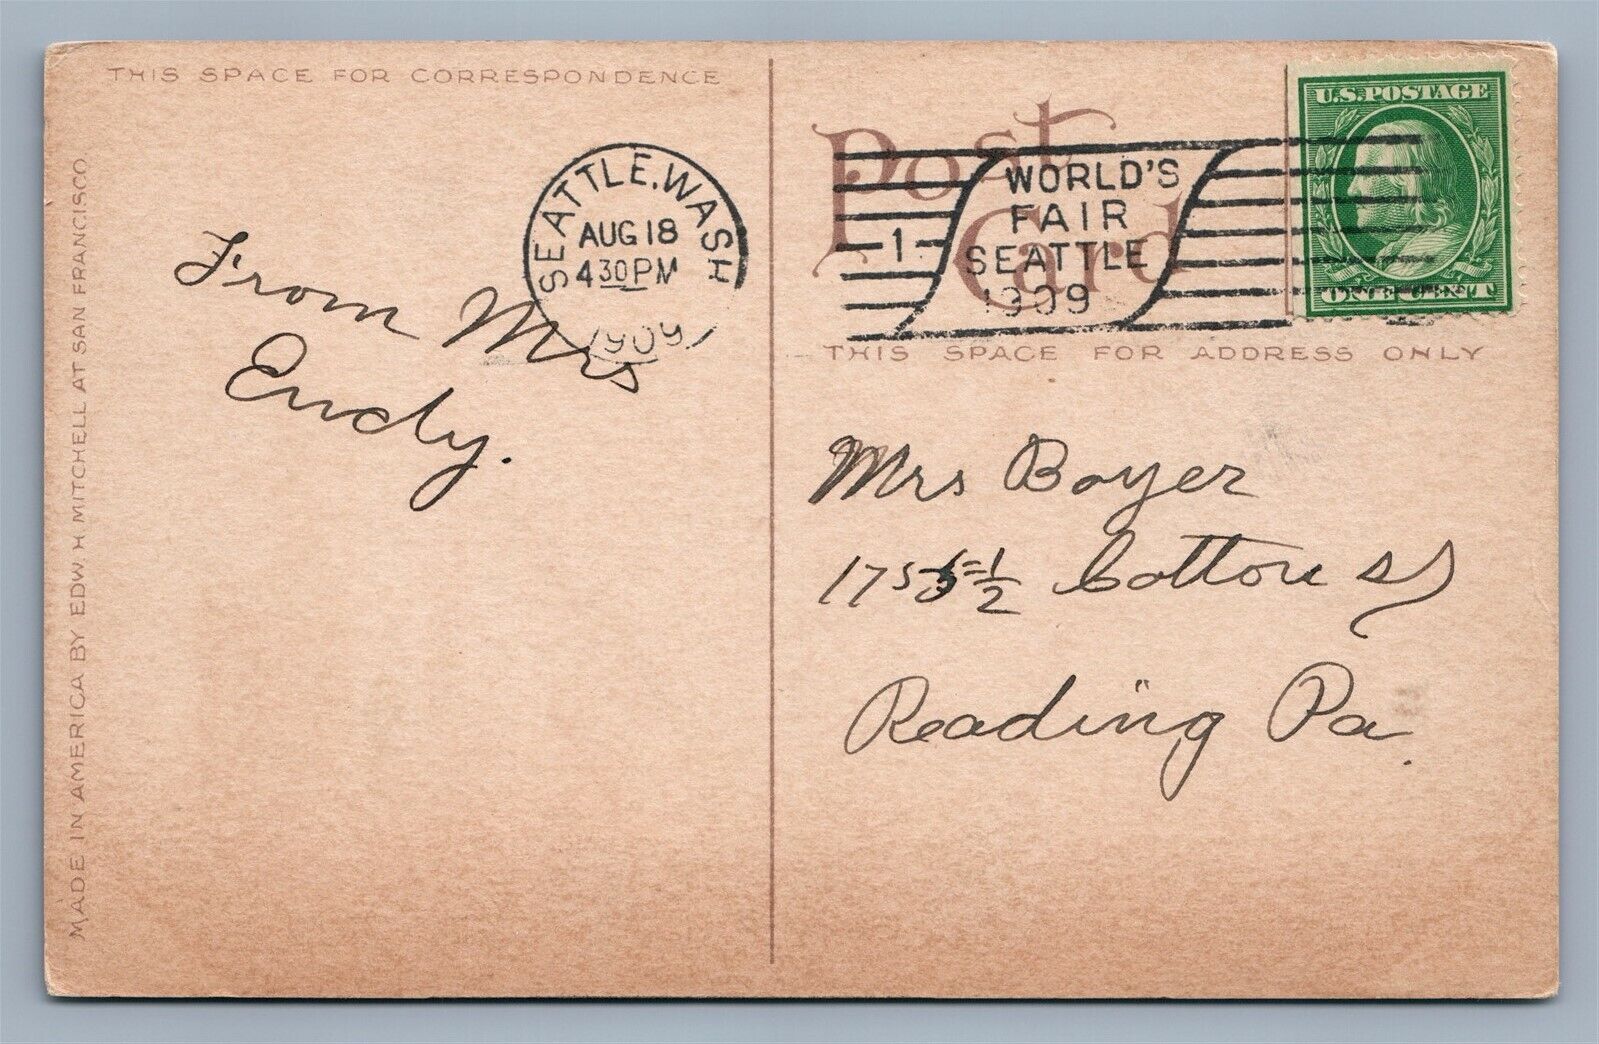 THIS SPACE FOR CORRESPONDENCE
MADE IN AMERICA BY EDW. H. MITCHELL AT SAN FRANCISCO.
From Mrs
Endy.
SEATTLE, WASH
AUG 18
4 30 PM
1909
Post
Card
1
WORLD'S
FAIR
SEATTLE
1909
U.S. POSTAGE
ONE CENT
THIS SPACE FOR ADDRESS ONLY
Mrs Boyer
1755 1/2 Cotton St
Reading Pa.